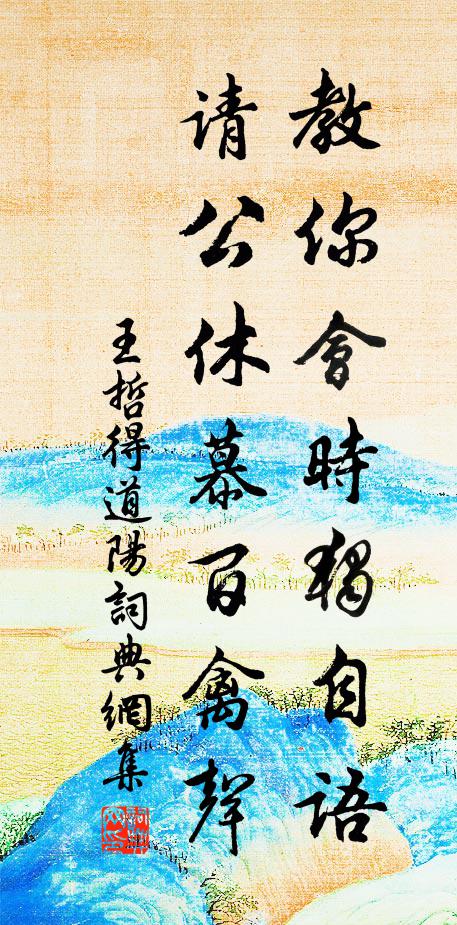 教你會時獨自語
请公休慕百禽聲
王哲得道陽詞典網集